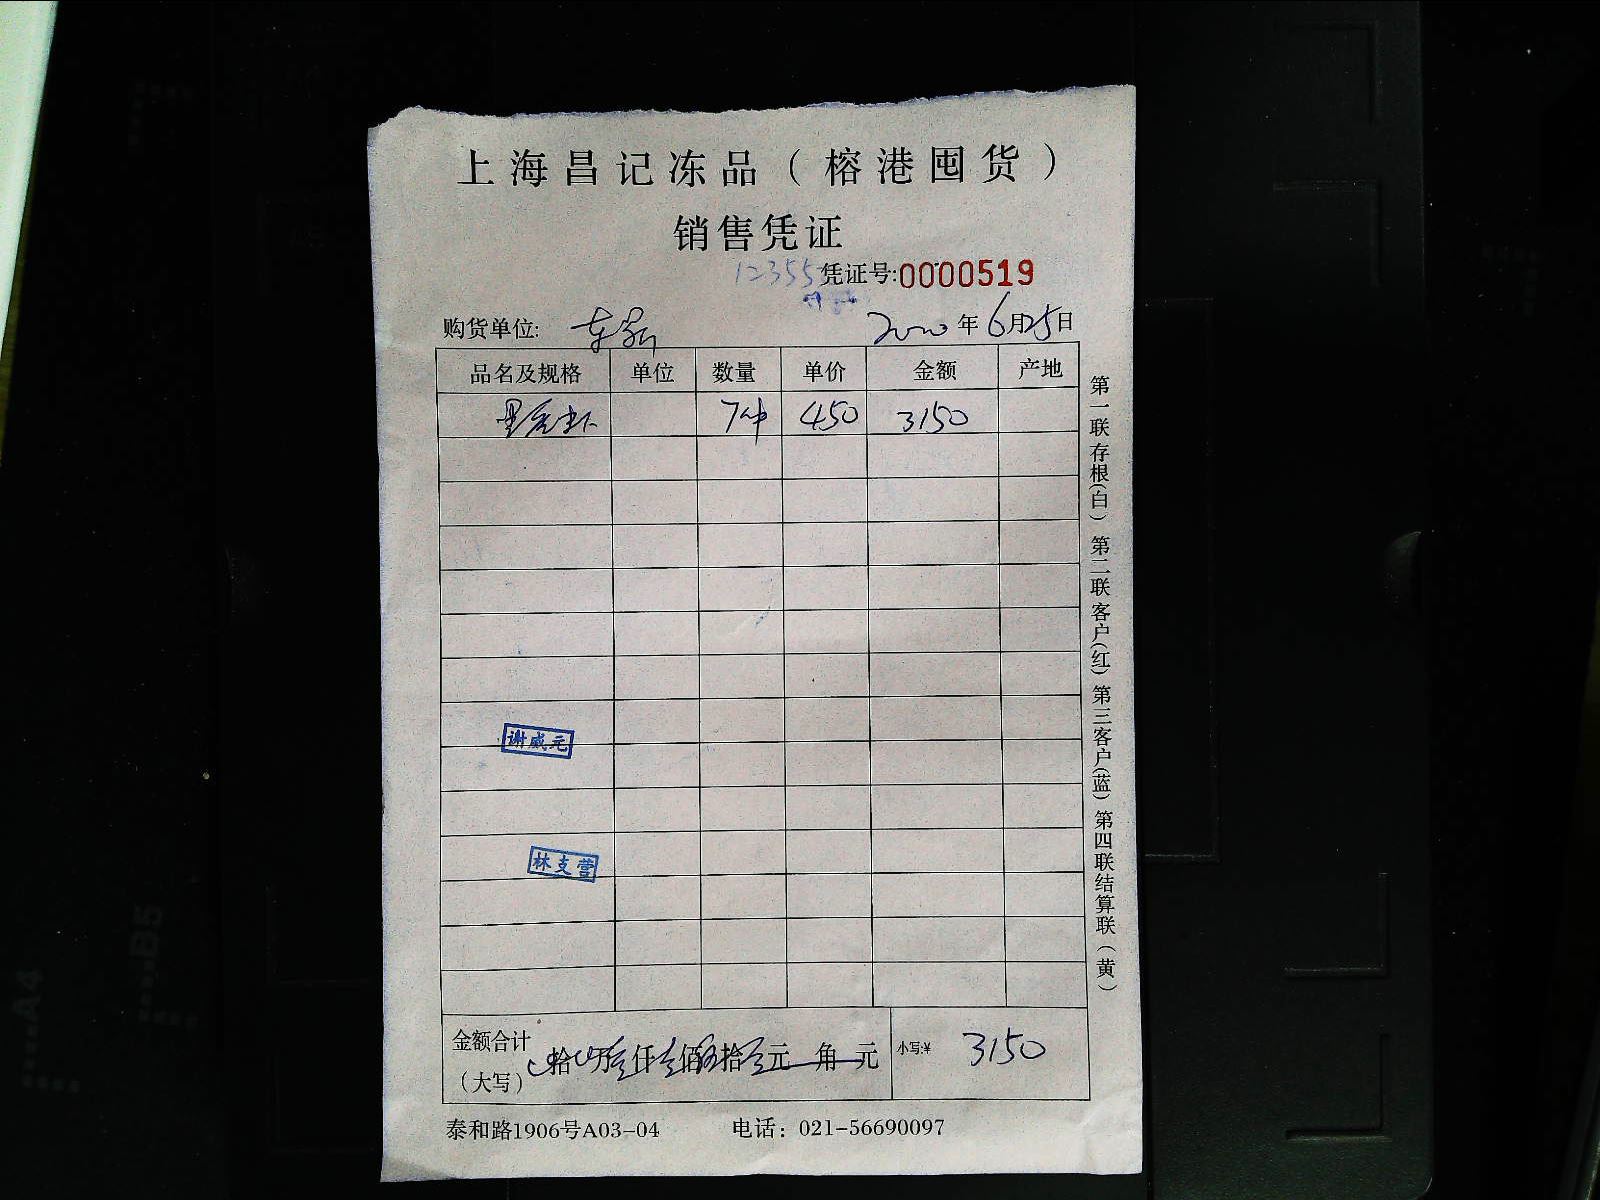 上海昌记冻品(榕港囤货)
销售凭证
12355 凭证号:0000519
购货单位: 2020年6月25日
品名及规格 单位 数量 单价 金额 产地
7件 450 3150
谢威元
林支营
金额合计 拾 万 仟 佰 拾 元 角 元 小写:¥ 3150
(大写)
泰和路1906号A03-04 电话: 021-56690097
第一联存根(白) 第二联客户(红) 第三客户(蓝) 第四联结算联(黄)